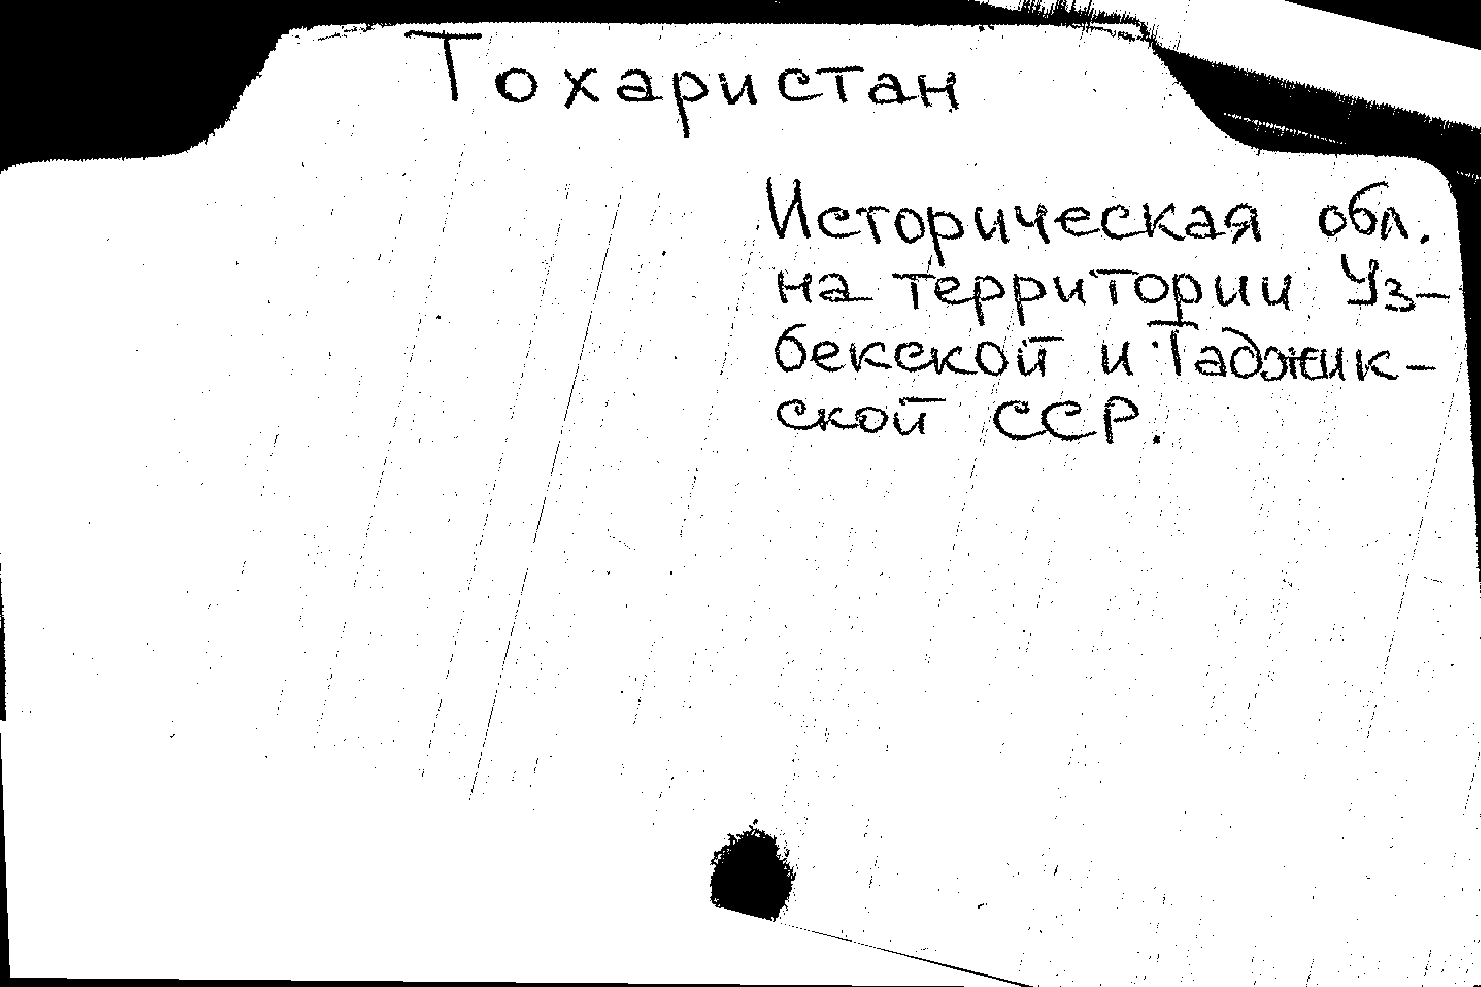 Тохаристан
Историческая обл.
на территории Уз-
бекской и Таджик-
ской ССР.